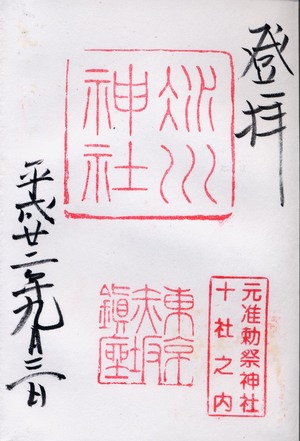 登拝
氷川
神社
元准勅祭神社
十社之内
東京
赤坂
鎮座
平成廿二年九月三日